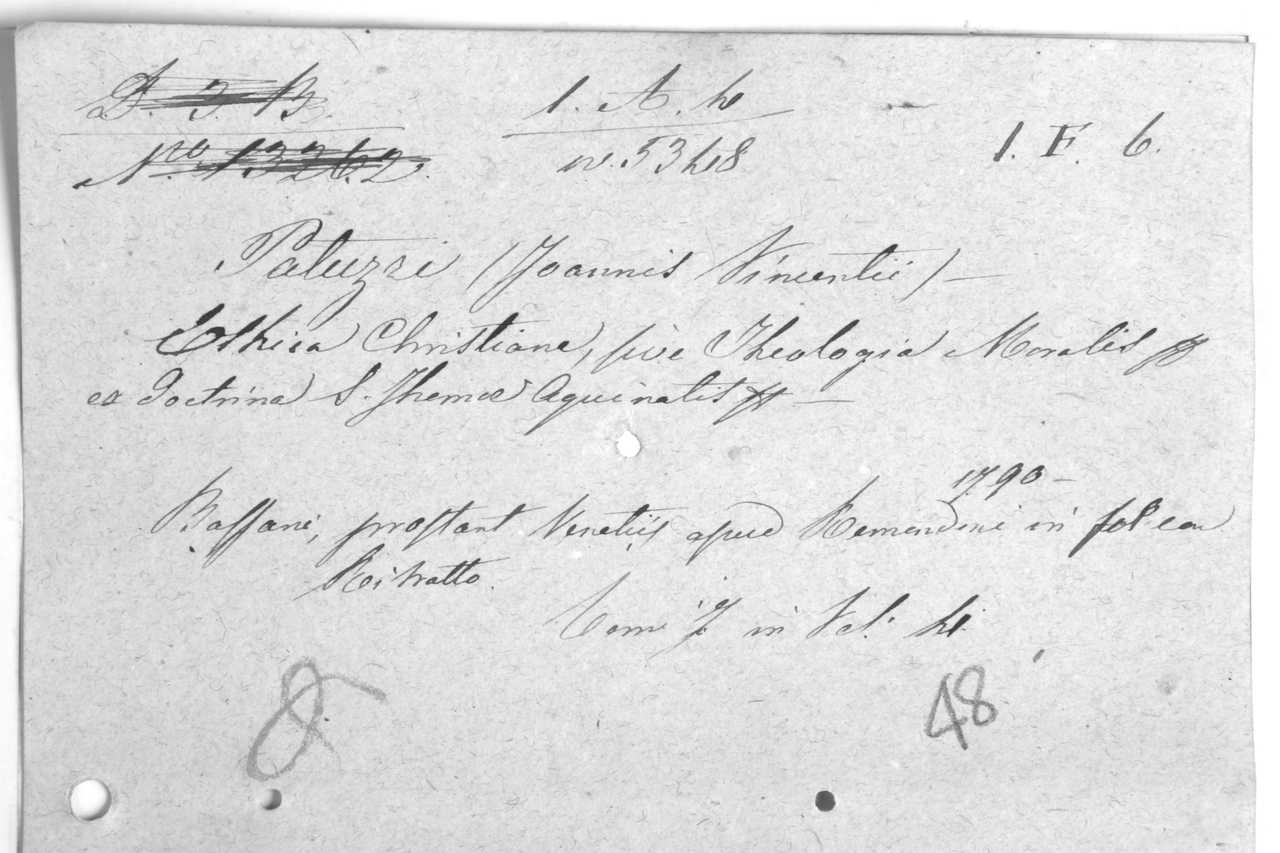 D. 3. B.
1. A. 4
Nro 13262.
nr. 5348
1. F. 6.
Patuzzi (Joannis Vincentii) —
Ethica Christiana, sive Theologia Moralis
ex doctrina S. Thomæ Aquinatis —
1790 —
Bassani, prostant Venetiis apud Remondini in fol. con
Ritratto.
Tomi 7. in Vol. 4.
48